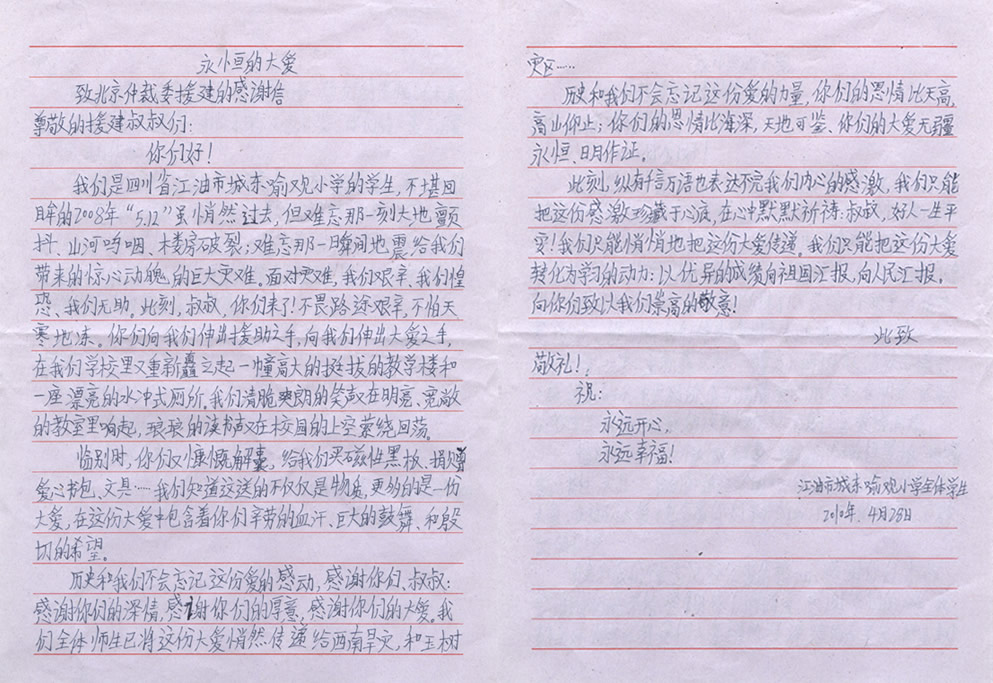 永恒的大爱
致北京仲裁委援建的感谢信
尊敬的援建叔叔们：
你们好！
我们是四川省江油市城东喻观小学的学生，不堪回
眸的2008年“5.12”虽悄然过去，但难忘那一刻大地颤
抖、山河呜咽、楼房破裂；难忘那一瞬间地震给我们
带来的惊心动魄的巨大灾难。面对灾难，我们艰辛、我们惶
恐、我们无助。此刻，叔叔，你们来了！不畏路途艰辛，不怕天
寒地冻。你们向我们伸出援助之手，向我们伸出大爱之手，
在我们学校里又重新矗立起一幢高大的挺拔的教学楼和
一座漂亮的水冲式厕所。我们清脆爽朗的笑声又在明亮、宽敞
的教室里响起，琅琅的读书声又在校园的上空萦绕回荡。
临别时，你们又慷慨解囊，给我们买磁性黑板、捐赠
爱心书包、文具……我们知道这送的不仅仅是物质，更多的是一份
大爱，在这份大爱中包含着你们辛劳的血汗、巨大的鼓舞、和殷
切的希望。
历史和我们不会忘记这份爱的感动，感谢你们、叔叔：
感谢你们的深情，感谢你们的厚意，感谢你们的大爱。我
们全体师生已将这份大爱悄然传递给西南旱灾，和玉树
灾区……
历史和我们不会忘记这份爱的力量，你们的恩情比天高，
高山仰止；你们的恩情比海深，天地可鉴、你们的大爱无疆
永恒、日月作证。
此刻，纵有千言万语也表达不完我们内心的感激，我们只能
把这份感激珍藏于心底，在心中默默祈祷：叔叔，好人一生平
安！我们只能悄悄地把这份大爱传递。我们只能把这份大爱
转化为学习的动力：以优异的成绩向祖国汇报，向人民汇报，
向你们致以我们崇高的敬意！
此致
敬礼！
祝：
永远开心，
永远幸福！
江油市城东喻观小学全体学生
2010年、4月28日